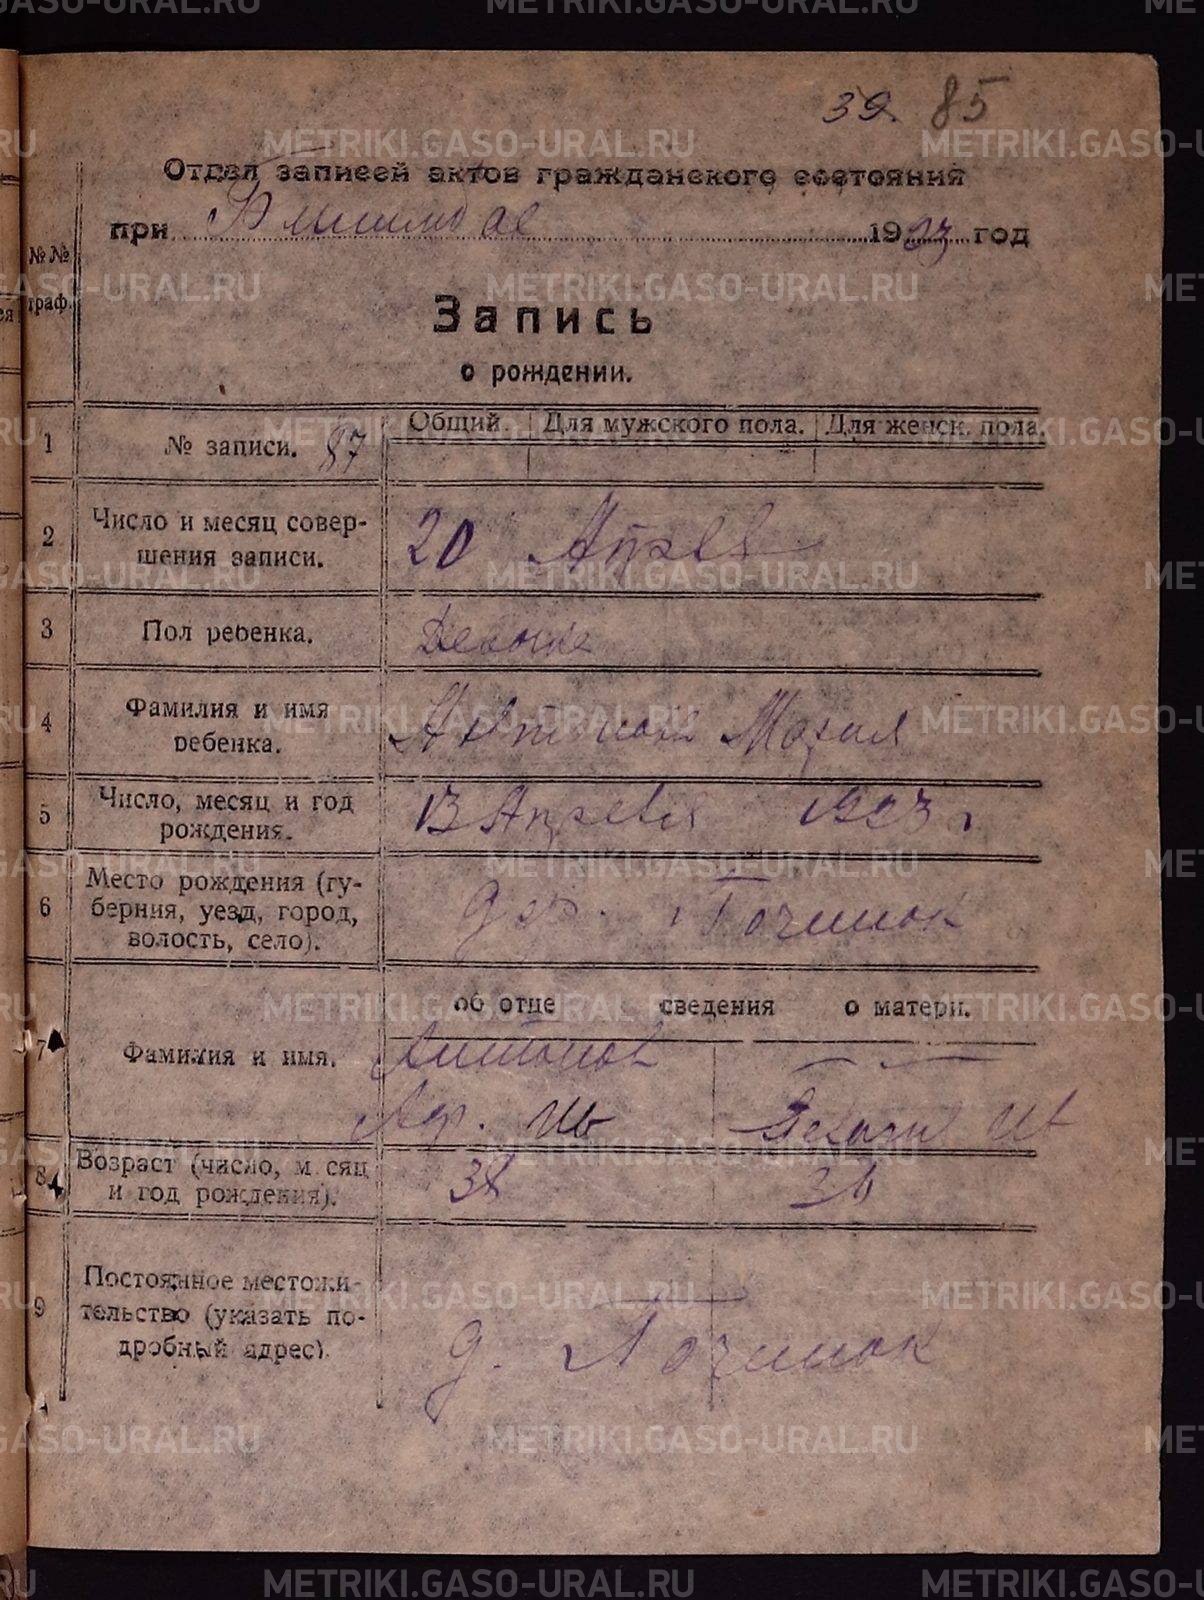 39. 85
Отдел записей актов гражданского состояния
при 1923 год
№№ граф.
Запись
о рождении.
1 № записи. 87 Общий. Для мужского пола. Для женск. пола.
2 Число и месяц совершения записи. 20 Апреля
3 Пол ребенка.
4 Фамилия и имя ребенка. Мария
5 Число, месяц и год рождения. 13 Апреля 1923 г
6 Место рождения (губерния, уезд, город, волость, село). дер. Починок
об отце сведения о матери.
7 Фамилия и имя. Антонов
8 Возраст (число, м сяц и год рождения). 38 36
9 Постоянное местожительство (указать подробный адрес). д. Починок
METRIKI.GASO-URAL.RU